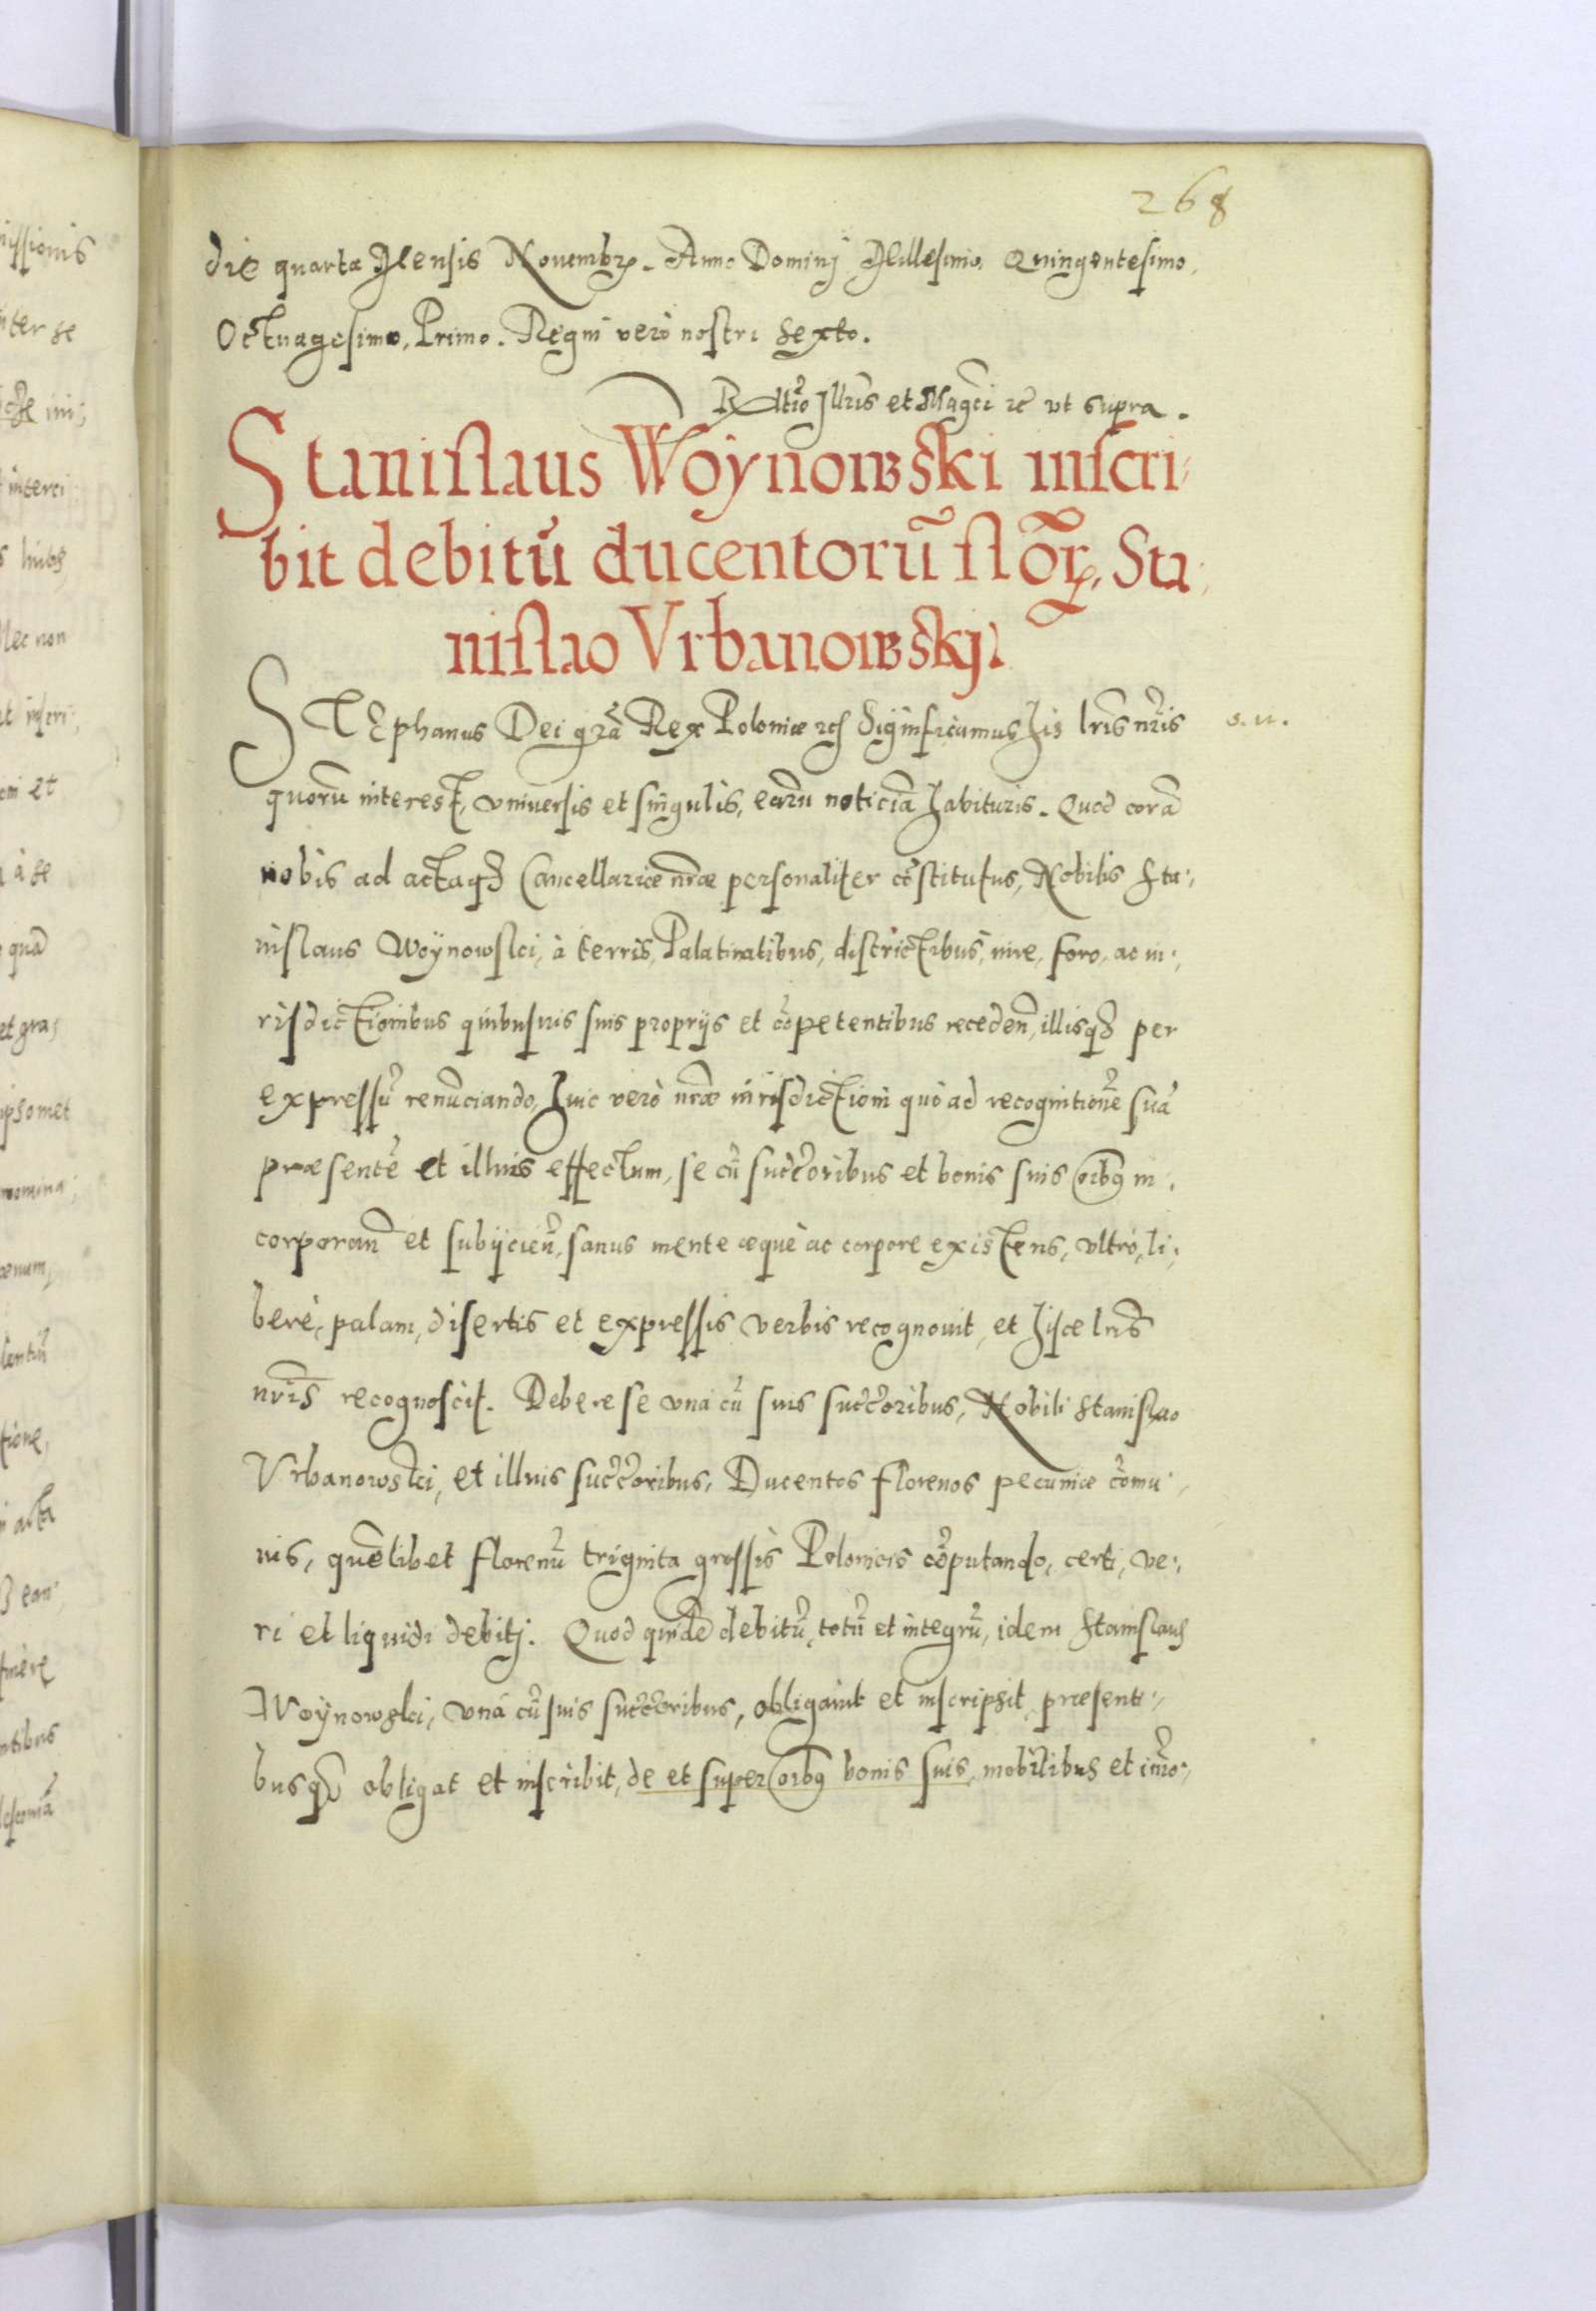 268
die quarta Mensis Novembr. Anno Dominj Millesimo Quingentesimo,
Octuagesimo, Primo. Regni verò nostri Sexto.
Rltio Illris et Magci rc vt supra.
Stanislaus Woynowski inscri
bit debitũ ducentorũ flor. Sta
nislao Vrbanowskj.
STEphanus Dei gra Rex Poloniæ rc Significamus his lris nris
quorũ interest, vniuersis et singulis, earũ noticiã habituris. Quod corã
nobis ad actaq3 Cancellariæ nræ personaliter cõstitutus, Nobilis Sta,
nislaus Woÿnowski, à terris, Palatinatibus, districtibus, iure, foro, ac iu,
risdictionibus quibusuis suis proprijs et cõpetentibus receden, illisq3 per
expressũ renũciando, huic verò nræ iurisdictioni quò ad recognitionẽ suã
præsentẽ et illius effectum, se cũ succoribus et bonis suis oibg in,
corporan et subijcien, sanus mente æquè ac corpore existens, vltrò, li,
berè, palam, disertis et expressis verbis recognouit, et hisce lris
nris recognoscit. Debere se vnà cũ suis succoribus, Nobili Stanislao
Vrbanowski, et illius succoribus, Ducentos florenos pecuniæ cõmu,
nis, quẽlibet florenũ triginta grossis Polonicis cõputando, certi, ve,
ri et liquidi debitj. Quod quide debitũ, totũ et integrũ, idem Stanislaus
Woÿnowski, vnà cũ suis succoribus, obligauit et inscripsit, præsenti,
busq3 obligat et inscribit, de et super oibg bonis suis, mobilibus et imo,
s. u.